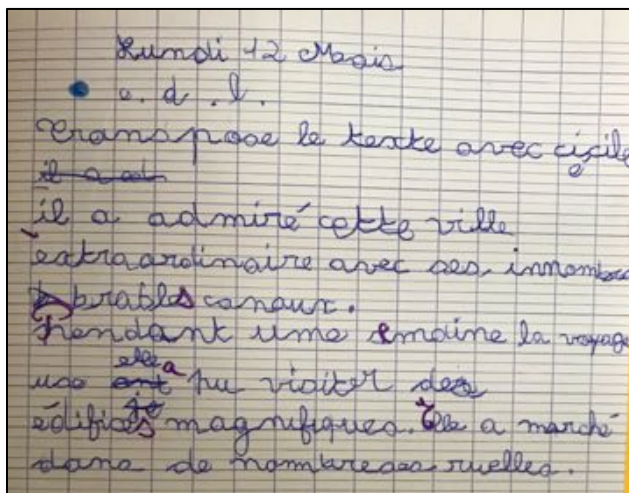 Lundi 12 Mars
e. d. l.
Transpose le texte avec cicile
il a ad
il a admiré cette ville
extraordinaire avec ses innombra
brables canaux.
Pendant une emaine la voyage
use elle a pu visiter des
édifices magnifiques. Elle a marché
dans de nombreuses ruelles.